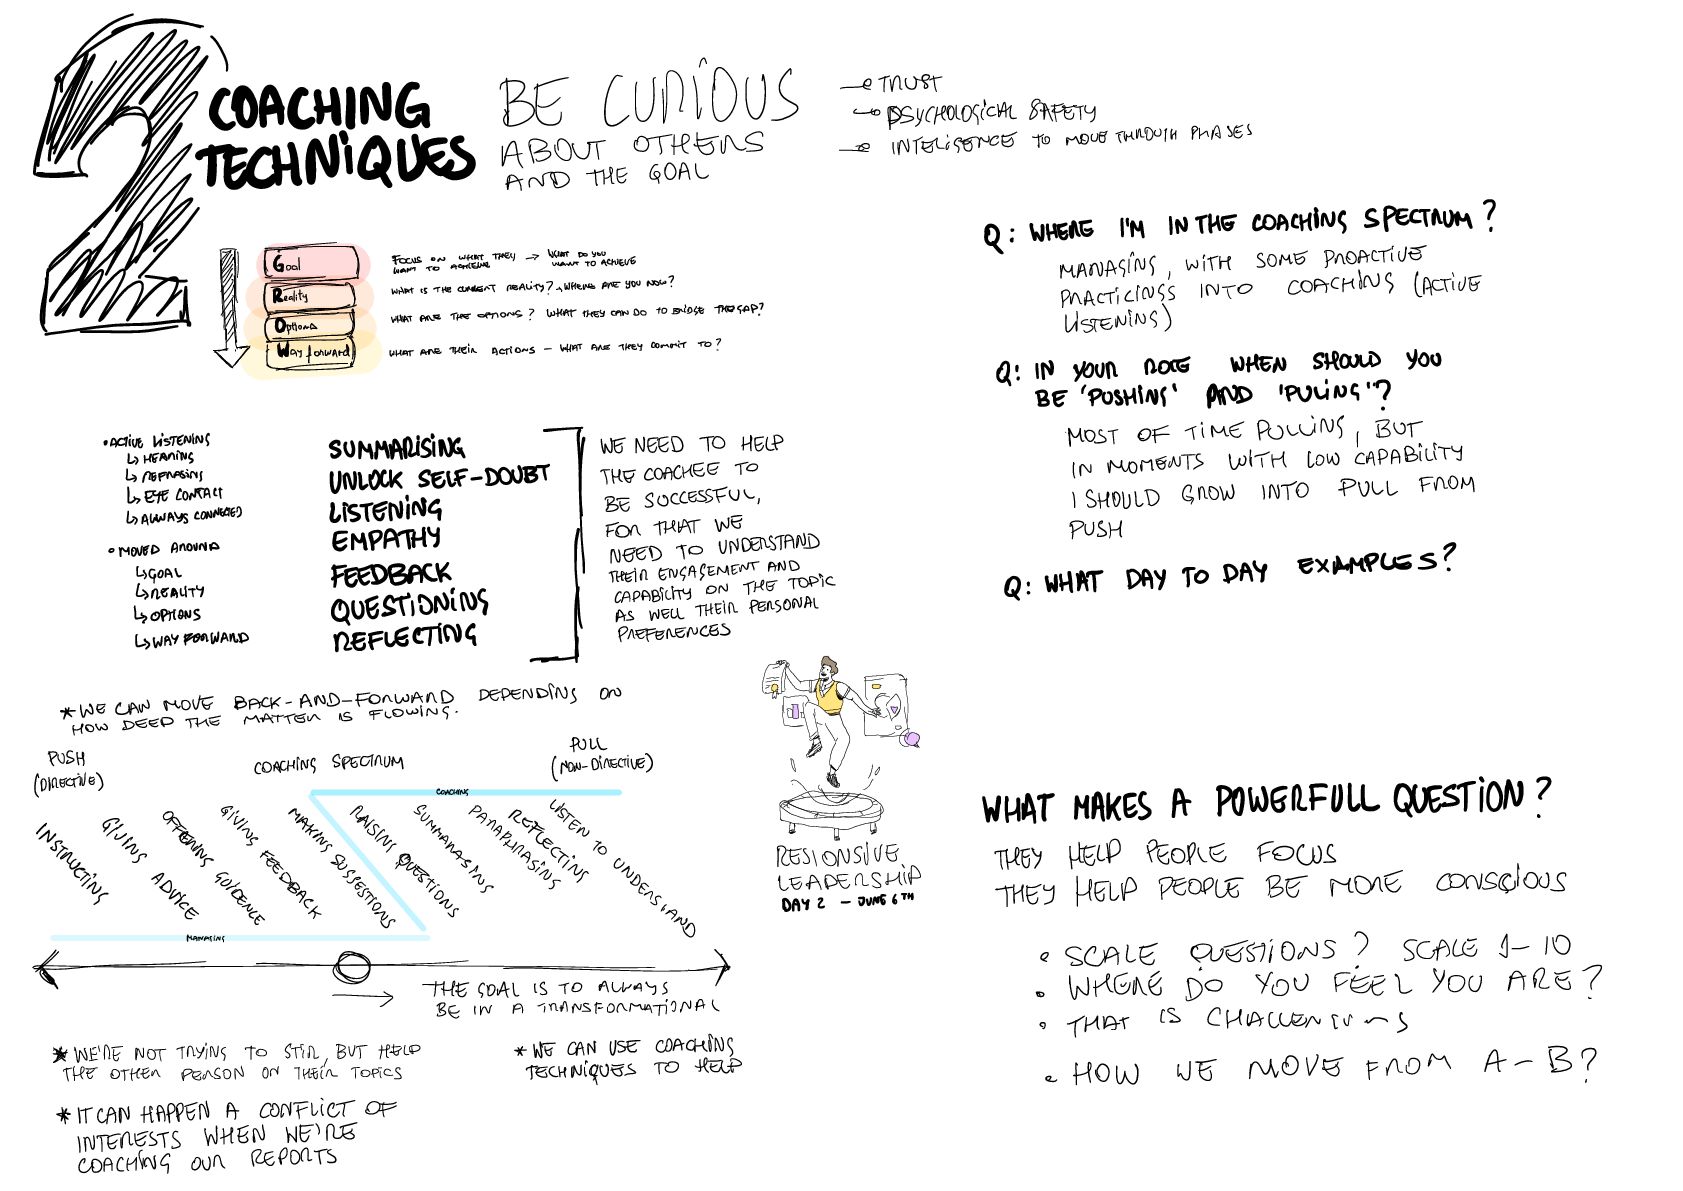 2
COACHING
TECHNIQUES
BE CURIOUS
ABOUT OTHERS
AND THE GOAL
TRUST
PSYCHOLOGICAL SAFETY
INTELIGENCE TO MOVE THROUGH PHASES
Goal
FOCUS ON WHAT THEY → WHAT DO YOU
WANT TO ACHIEVE WANT TO ACHIEVE
Reality
WHAT IS THE CURRENT REALITY? WHERE ARE YOU NOW?
Options
WHAT ARE THE OPTIONS? WHAT THEY CAN DO TO BRIDGE THE GAP?
Way forward
WHAT ARE THEIR ACTIONS – WHAT ARE THEY COMMIT TO?
• ACTIVE LISTENING
↳ HEARING
↳ REFRASING
↳ EYE CONTACT
↳ ALWAYS CONNECTED
• MOVED AROUND
↳ GOAL
↳ REALITY
↳ OPTIONS
↳ WAY FORWARD
SUMMARISING
UNLOCK SELF-DOUBT
LISTENING
EMPATHY
FEEDBACK
QUESTIONING
REFLECTING
WE NEED TO HELP
THE COACHEE TO
BE SUCCESSFUL,
FOR THAT WE
NEED TO UNDERSTAND
THEIR ENGAGEMENT AND
CAPABILITY ON THE TOPIC
AS WELL THEIR PERSONAL
PREFERENCES
* WE CAN MOVE BACK-AND-FORWARD DEPENDING ON
HOW DEEP THE MATTER IS FLOWING.
PUSH
(DIRECTIVE)
COACHING SPECTRUM
PULL
(NON-DIRECTIVE)
COACHING
INSTRUCTING
GIVING ADVICE
OFFERING GUIDENCE
GIVING FEEDBACK
MAKING SUGGESTIONS
RAISING QUESTIONS
SUMMARASING
PARAPHRASING
REFLECTING
LISTEN TO UNDERSTAND
MANAGING
THE GOAL IS TO ALWAYS
BE IN A TRANSFORMATIONAL
* WE'RE NOT TRYING TO STIR, BUT HELP
THE OTHER PERSON ON THEIR TOPICS
* WE CAN USE COACHING
TECHNIQUES TO HELP
* IT CAN HAPPEN A CONFLICT OF
INTERESTS WHEN WE'RE
COACHING OUR REPORTS
RESIONSIVE
LEADERSHIP
DAY 2 – JUNE 6TH
Q: WHERE I'M IN THE COACHING SPECTRUM?
MANAGING, WITH SOME PROACTIVE
PRACTICINGS INTO COACHING (ACTIVE
LISTENING)
Q: IN YOUR ROLE WHEN SHOULD YOU
BE 'PUSHING' AND 'PULING'?
MOST OF TIME PULLING, BUT
IN MOMENTS WITH LOW CAPABILITY
I SHOULD GROW INTO PULL FROM
PUSH
Q: WHAT DAY TO DAY EXAMPLES?
WHAT MAKES A POWERFULL QUESTION?
THEY HELP PEOPLE FOCUS
THEY HELP PEOPLE BE MORE CONSCIOUS
• SCALE QUESTIONS? SCALE 1-10
• WHERE DO YOU FEEL YOU ARE?
• THAT IS CHALLENGING
• HOW WE MOVE FROM A – B?